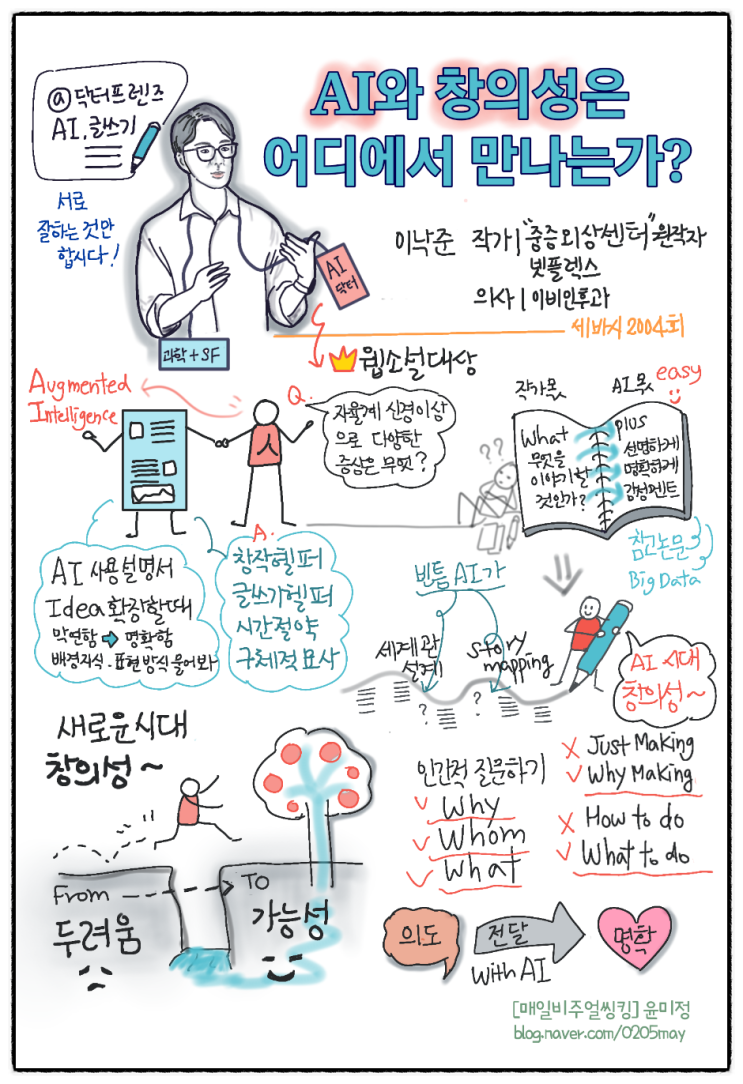 @닥터프렌즈
AI.글쓰기
AI와 창의성은
어디에서 만나는가?
서로
잘하는 것만
합시다!
이낙준 작가 | "중증외상센터" 원작자
넷플렉스
의사 | 이비인후과
AI
닥터
과학+SF
세바시 2004회
웹소설대상
Augmented
Intelligence
Q.
자율계 신경이상
으로 다양한
증상은 무엇?
작가몫
AI몫
easy
What
무엇을
이야기할
것인가?
plus
선명하게
명확하게
강정멘트
??
참고논문
Big Data
A.
AI 사용설명서
Idea 확장할때
막연함 → 명확함
배경지식. 표현방식 물어봐
창작헬퍼
글쓰기헬퍼
시간절약
구체적묘사
빈틈AI가
세계관
설계
story
mapping
?
?
AI 시대
창의성~
새로운시대
창의성~
From
두려움
TO
가능성
인간적 질문하기
v Why
v Whom
v What
x Just Making
v Why Making
x How to do
v What to do
의도
전달
with AI
명확
[매일비주얼씽킹] 윤미정
blog.naver.com/0205may